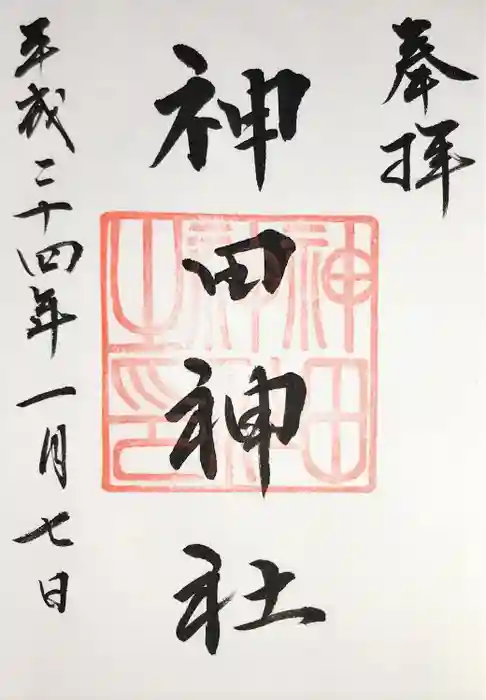 奉拝
神田神社
神田神社之印
平成二十四年一月七日